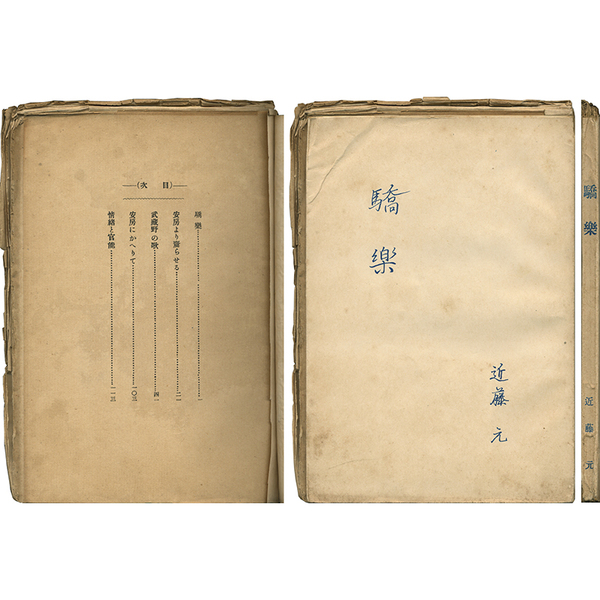 （目次）
驕樂 一
安房より齎らせる 二一
武藏野の唄 四一
安房にかへりて 一〇三
情緒と官能 一一三
驕樂
近藤元
驕樂
近藤元